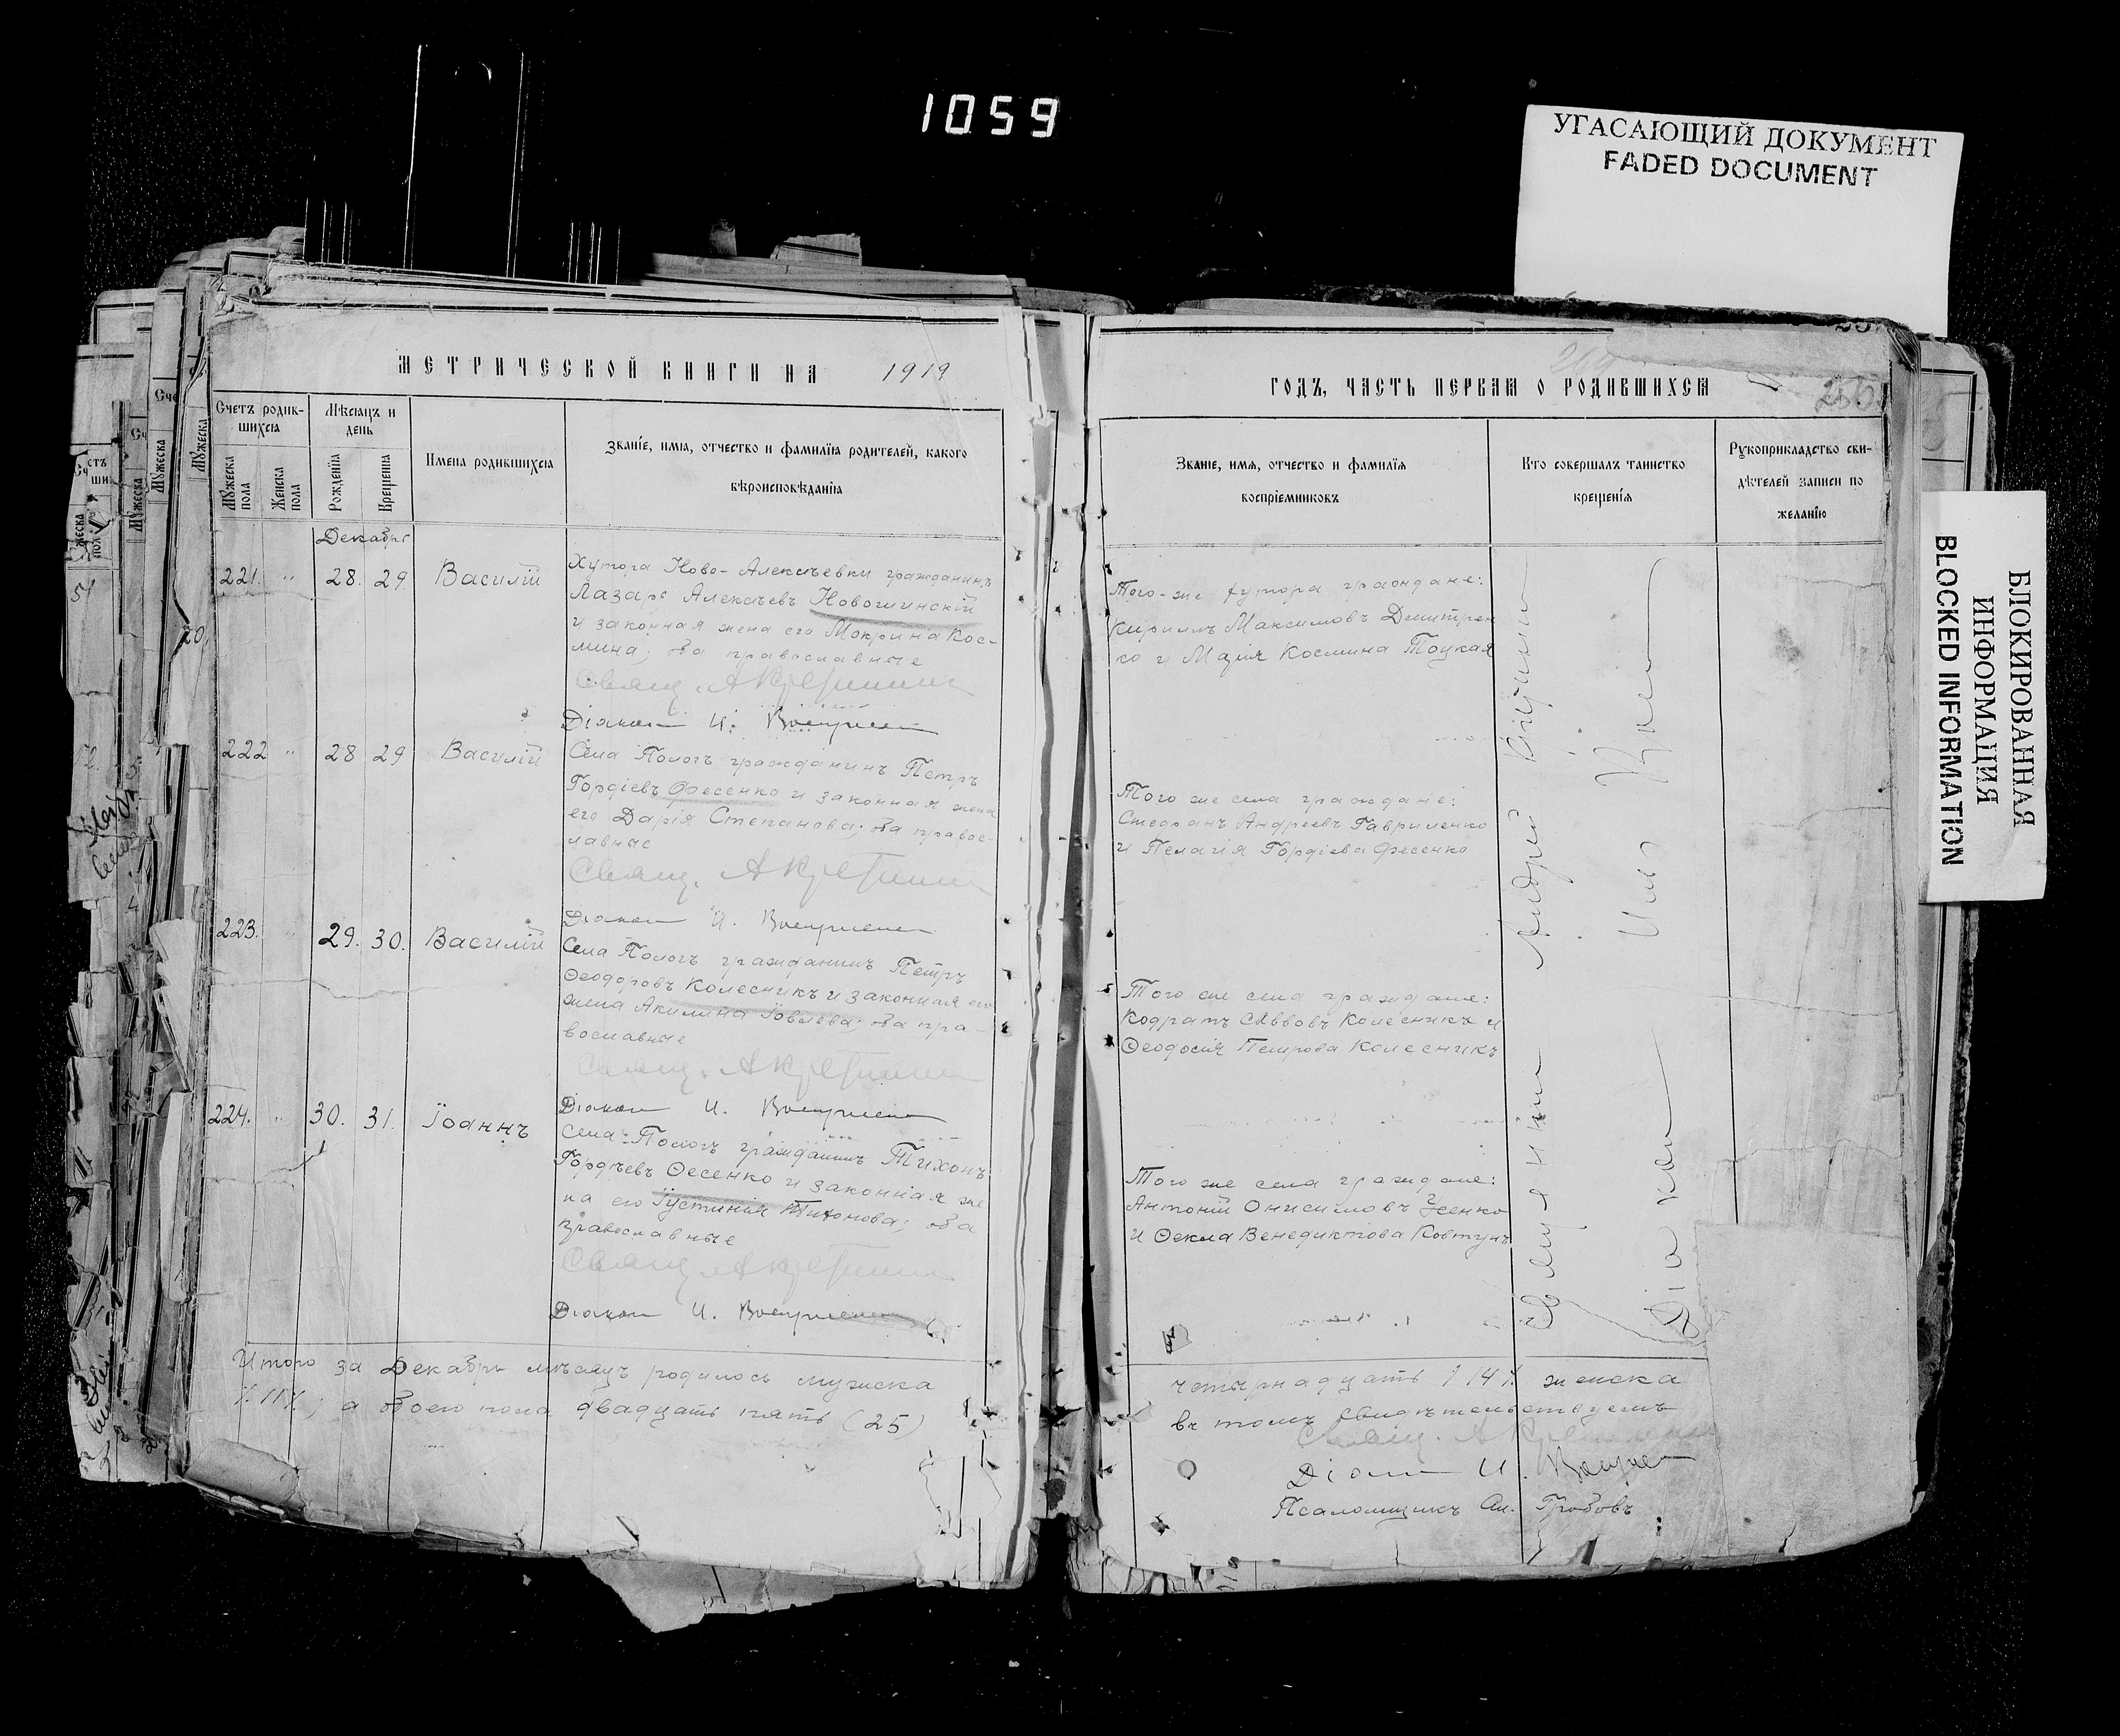 1059
УГАСАЮЩИЙ ДОКУМЕНТ
FADED DOCUMENT
БЛОКИРОВАННАЯ
ИНФОРМАЦИЯ
BLOCKED INFORMATION
МЕТРИЧЕСКОЙ КНИГИ НА 1919
Счетъ родив-
шихся
Мѣсяцъ и
день
Имена родившихся
Званіе, имя, отчество и фамилія родителей, какого
вѣроисповѣданія
Мужеска
пола
Женска
пола
Рожденія
Крещенія
Декабрь
221. " 28. 29. Василій
Хутора Ново-Алексѣевки гражданинъ
Лазарь Алексѣевъ Новоглинскій
и законная жена его Мокрина Кос-
мина; оба православные
Свящ.
Діакон И.
222 " 28 29 Василій
Села Пологъ гражданинъ Петръ
Гордіевъ Фесенко и законная жена
его Дарія Степанова; оба правос-
лавные
Свящ.
Діакон И.
223. " 29. 30. Василій
Села Пологъ гражданинъ Петръ
Ѳеодоровъ Колесникъ и законная его
жена Акилина Іовлева; оба пра-
вославные
Свящ.
Діакон И.
224. " 30. 31. Іоаннъ
Села Пологъ гражданинъ Тихонъ
Гордѣевъ Ѳесенко и законная же
на его Іустинія Тихонова; оба
православные
Свящ.
Діакон И.
Итого за Декабрь мѣсяцъ родилось мужска
/.11/.; а обоего пола двадцать пять (25)
ГОДЪ, ЧАСТЬ ПЕРВАЯ О РОДИВШИХСЯ
Званіе, имя, отчество и фамилія
воспріемниковъ
Кто совершалъ таинство
крещенія
Рукоприкладство сви-
дѣтелей записи по
желанію
Того-же хутора граждане:
Кириллъ Максимовъ Дмитрен
ко и Марія Космина Тоцкая
Того же села граждане:
Стефанъ Андреевъ Гавриленко
и Пелагія Гордіева Фесенко
Того же села граждане:
Кодратъ Саввовъ Колесникъ и
Ѳеодосія Петрова Колесникъ
Того же села граждане:
Антоній Онисимовъ Усенко
и Ѳекла Венедиктова Ковтунъ
Андрей
Діакон
четырнадцать /14/. женска
въ томъ свидѣтельствуемъ
Свящ.
Діакон И.
Псаломщикъ Ал. Грабовъ